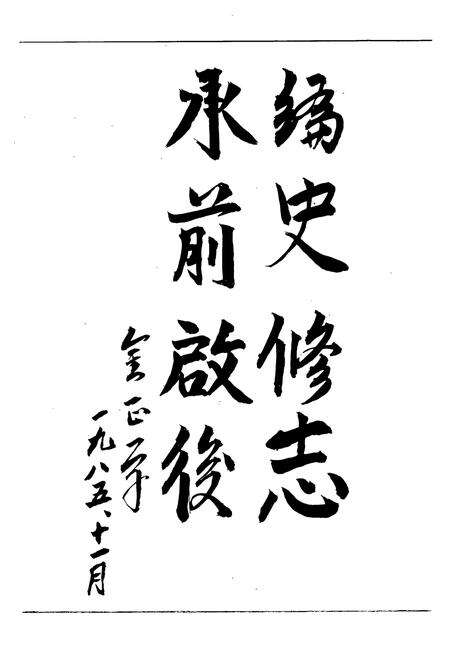 編史修志
承前啟後
金正
一九八五、十一月